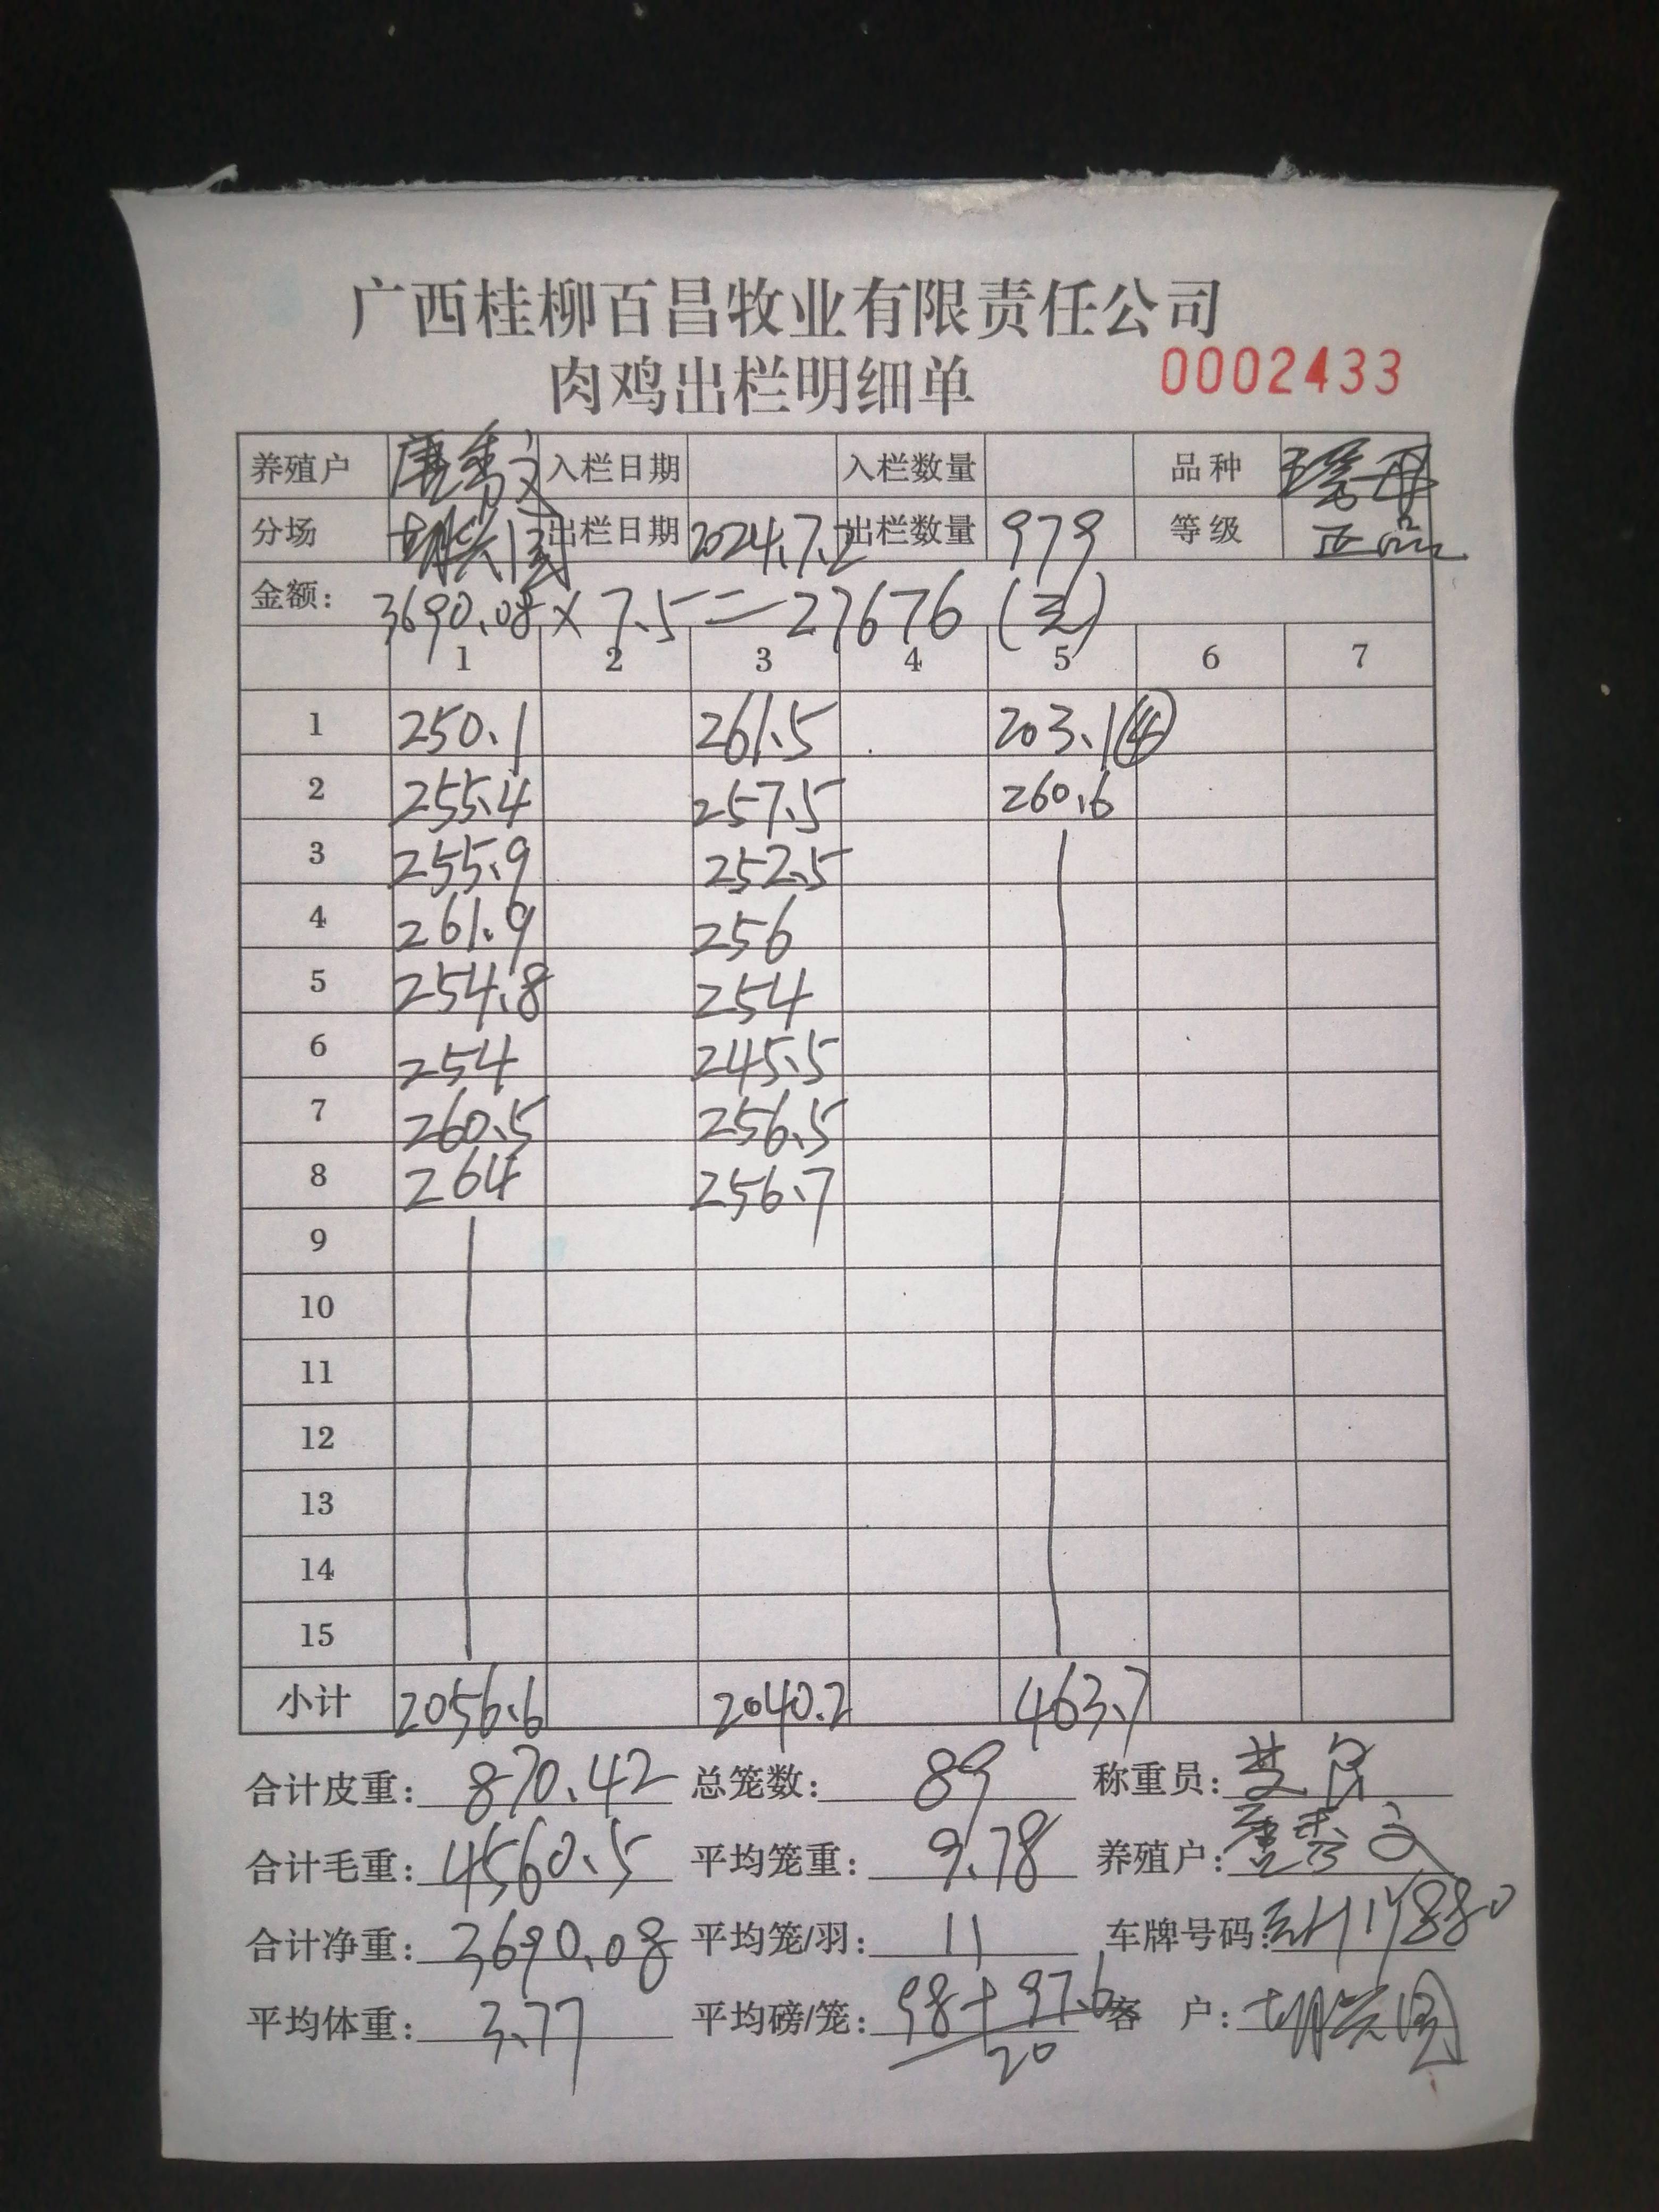 广西桂柳百昌牧业有限责任公司
肉鸡出栏明细单 0002433
养殖户 唐秀文 入栏日期 入栏数量 品种
分场 胡兴国 出栏日期 2024.7.2 出栏数量 979 等级 正品
金额: 3690.08×7.5=27676(元)
1 2 3 4 5 6 7
1 250.1 261.5 203.1④
2 255.4 257.5 260.6
3 255.9 252.5
4 261.9 256
5 254.8 254
6 254 245.5
7 260.5 256.5
8 264 256.7
9
10
11
12
13
14
15
小计 2056.6 2040.2 463.7
合计皮重: 870.42 总笼数: 89 称重员:
合计毛重: 4560.5 平均笼重: 9.78 养殖户: 唐秀文
合计净重: 3690.08 平均笼/羽: 11 车牌号码:
平均体重: 3.77 平均磅/笼: 98+97.6 客户: 胡兴国
20